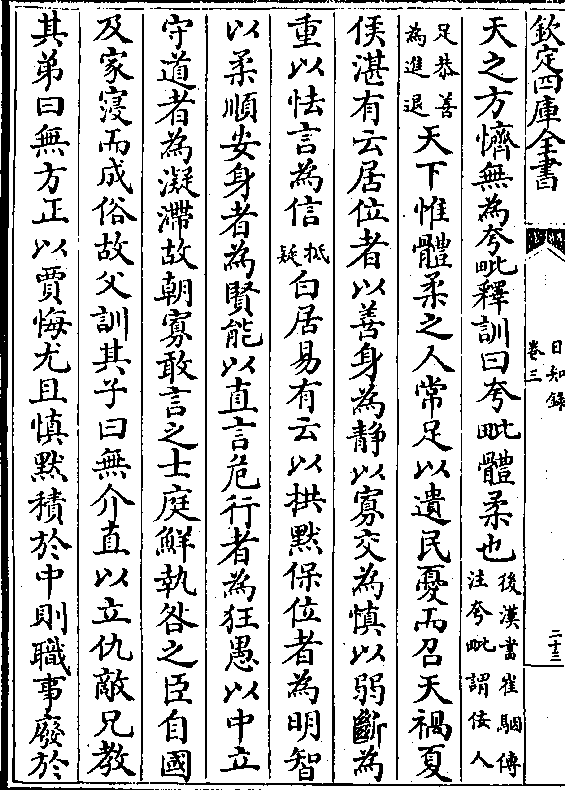 欽定四庫全書
日知錄
卷三
二十三
天之方懠無為夸毗釋訓曰夸毗體柔也後漢書崔駰傳
注夸毗謂佞人
足恭善
為進退天下惟體柔之人常足以遺民憂而召天禍夏
侯湛有云居位者以善身為靜以寡交為慎以弱斷為
重以怯言為信抵
疑白居易有云以拱默保位者為明智
以柔順安身者為賢能以直言危行者為狂愚以中立
守道者為凝滯故朝寡敢言之士庭鮮執咎之臣自國
及家寖而成俗故父訓其子曰無介直以立仇敵兄教
其弟曰無方正以賈悔尤且慎默積於中則職事廢於